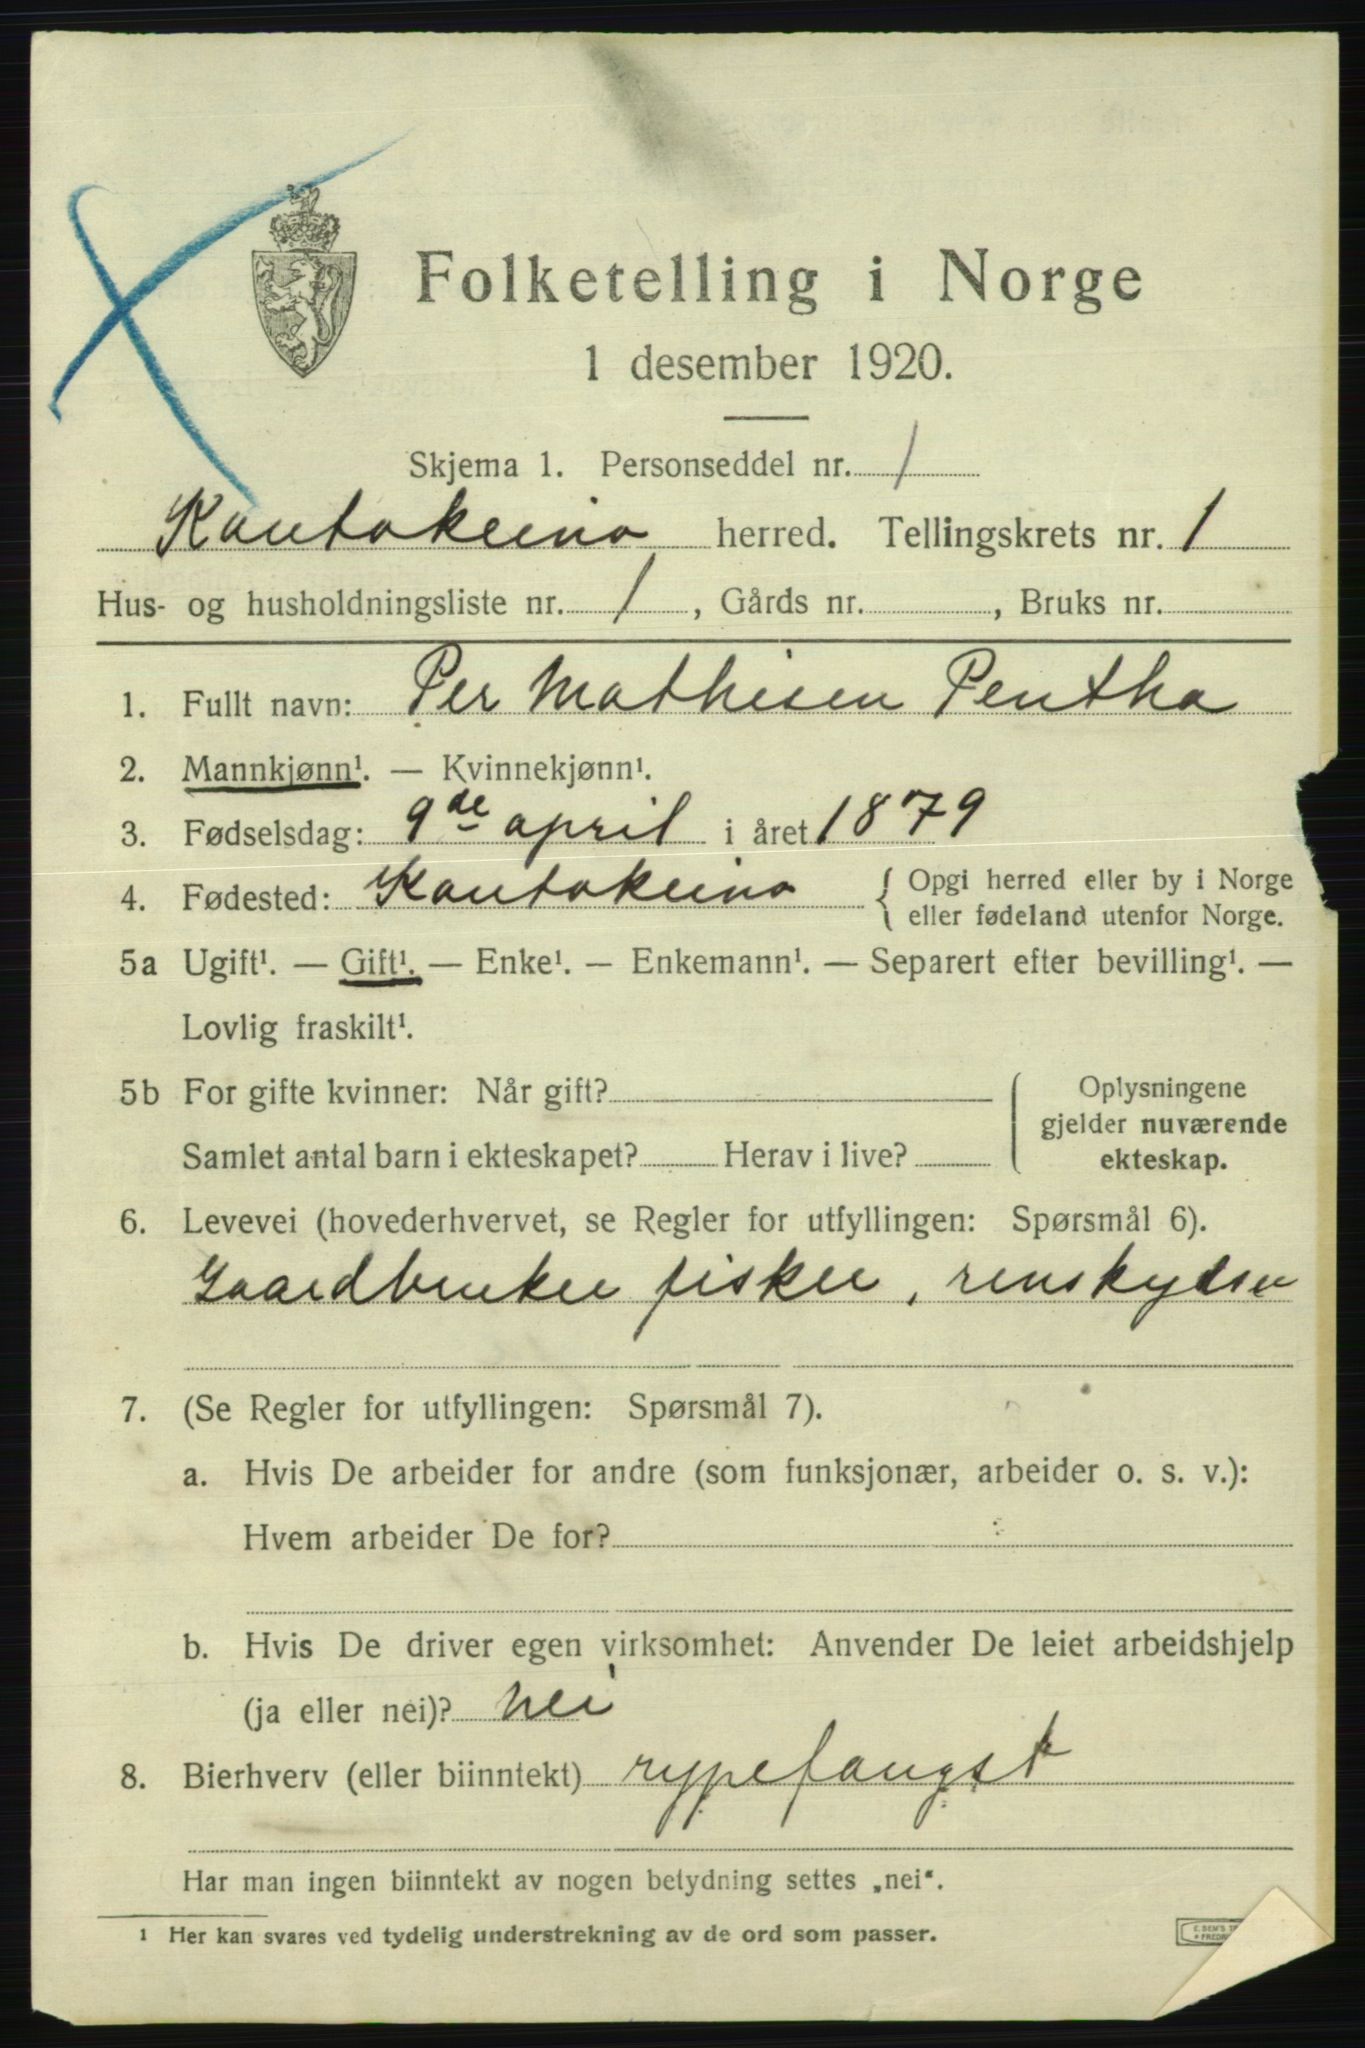 Folketelling i Norge
1 desember 1920.
Skjema 1. Personseddel nr. 1
Kautokeino herred. Tellingskrets nr. 1
Hus- og husholdningsliste nr. 1, Gårds nr. , Bruks nr.
1. Fullt navn: Per Mathisen Pentha
2. Mannkjønn¹. — Kvinnekjønn¹.
3. Fødselsdag: 9de april i året 1879
4. Fødested: Kautokeino { Opgi herred eller by i Norge
eller fødeland utenfor Norge.
5a Ugift¹. — Gift¹. — Enke¹. — Enkemann¹. — Separert efter bevilling¹. —
Lovlig fraskilt¹.
5b For gifte kvinner: Når gift? Oplysningene
gjelder nuværende
Samlet antal barn i ekteskapet? Herav i live? ekteskap.
6. Levevei (hovederhvervet, se Regler for utfyllingen: Spørsmål 6).
Gaardbruker fisker, renskydser
7. (Se Regler for utfyllingen: Spørsmål 7).
a. Hvis De arbeider for andre (som funksjonær, arbeider o. s. v.):
Hvem arbeider De for?
b. Hvis De driver egen virksomhet: Anvender De leiet arbeidshjelp
(ja eller nei)? nei
8. Bierhverv (eller biinntekt) rypefangst
Har man ingen biinntekt av nogen betydning settes „nei“.
¹ Her kan svares ved tydelig understrekning av de ord som passer.